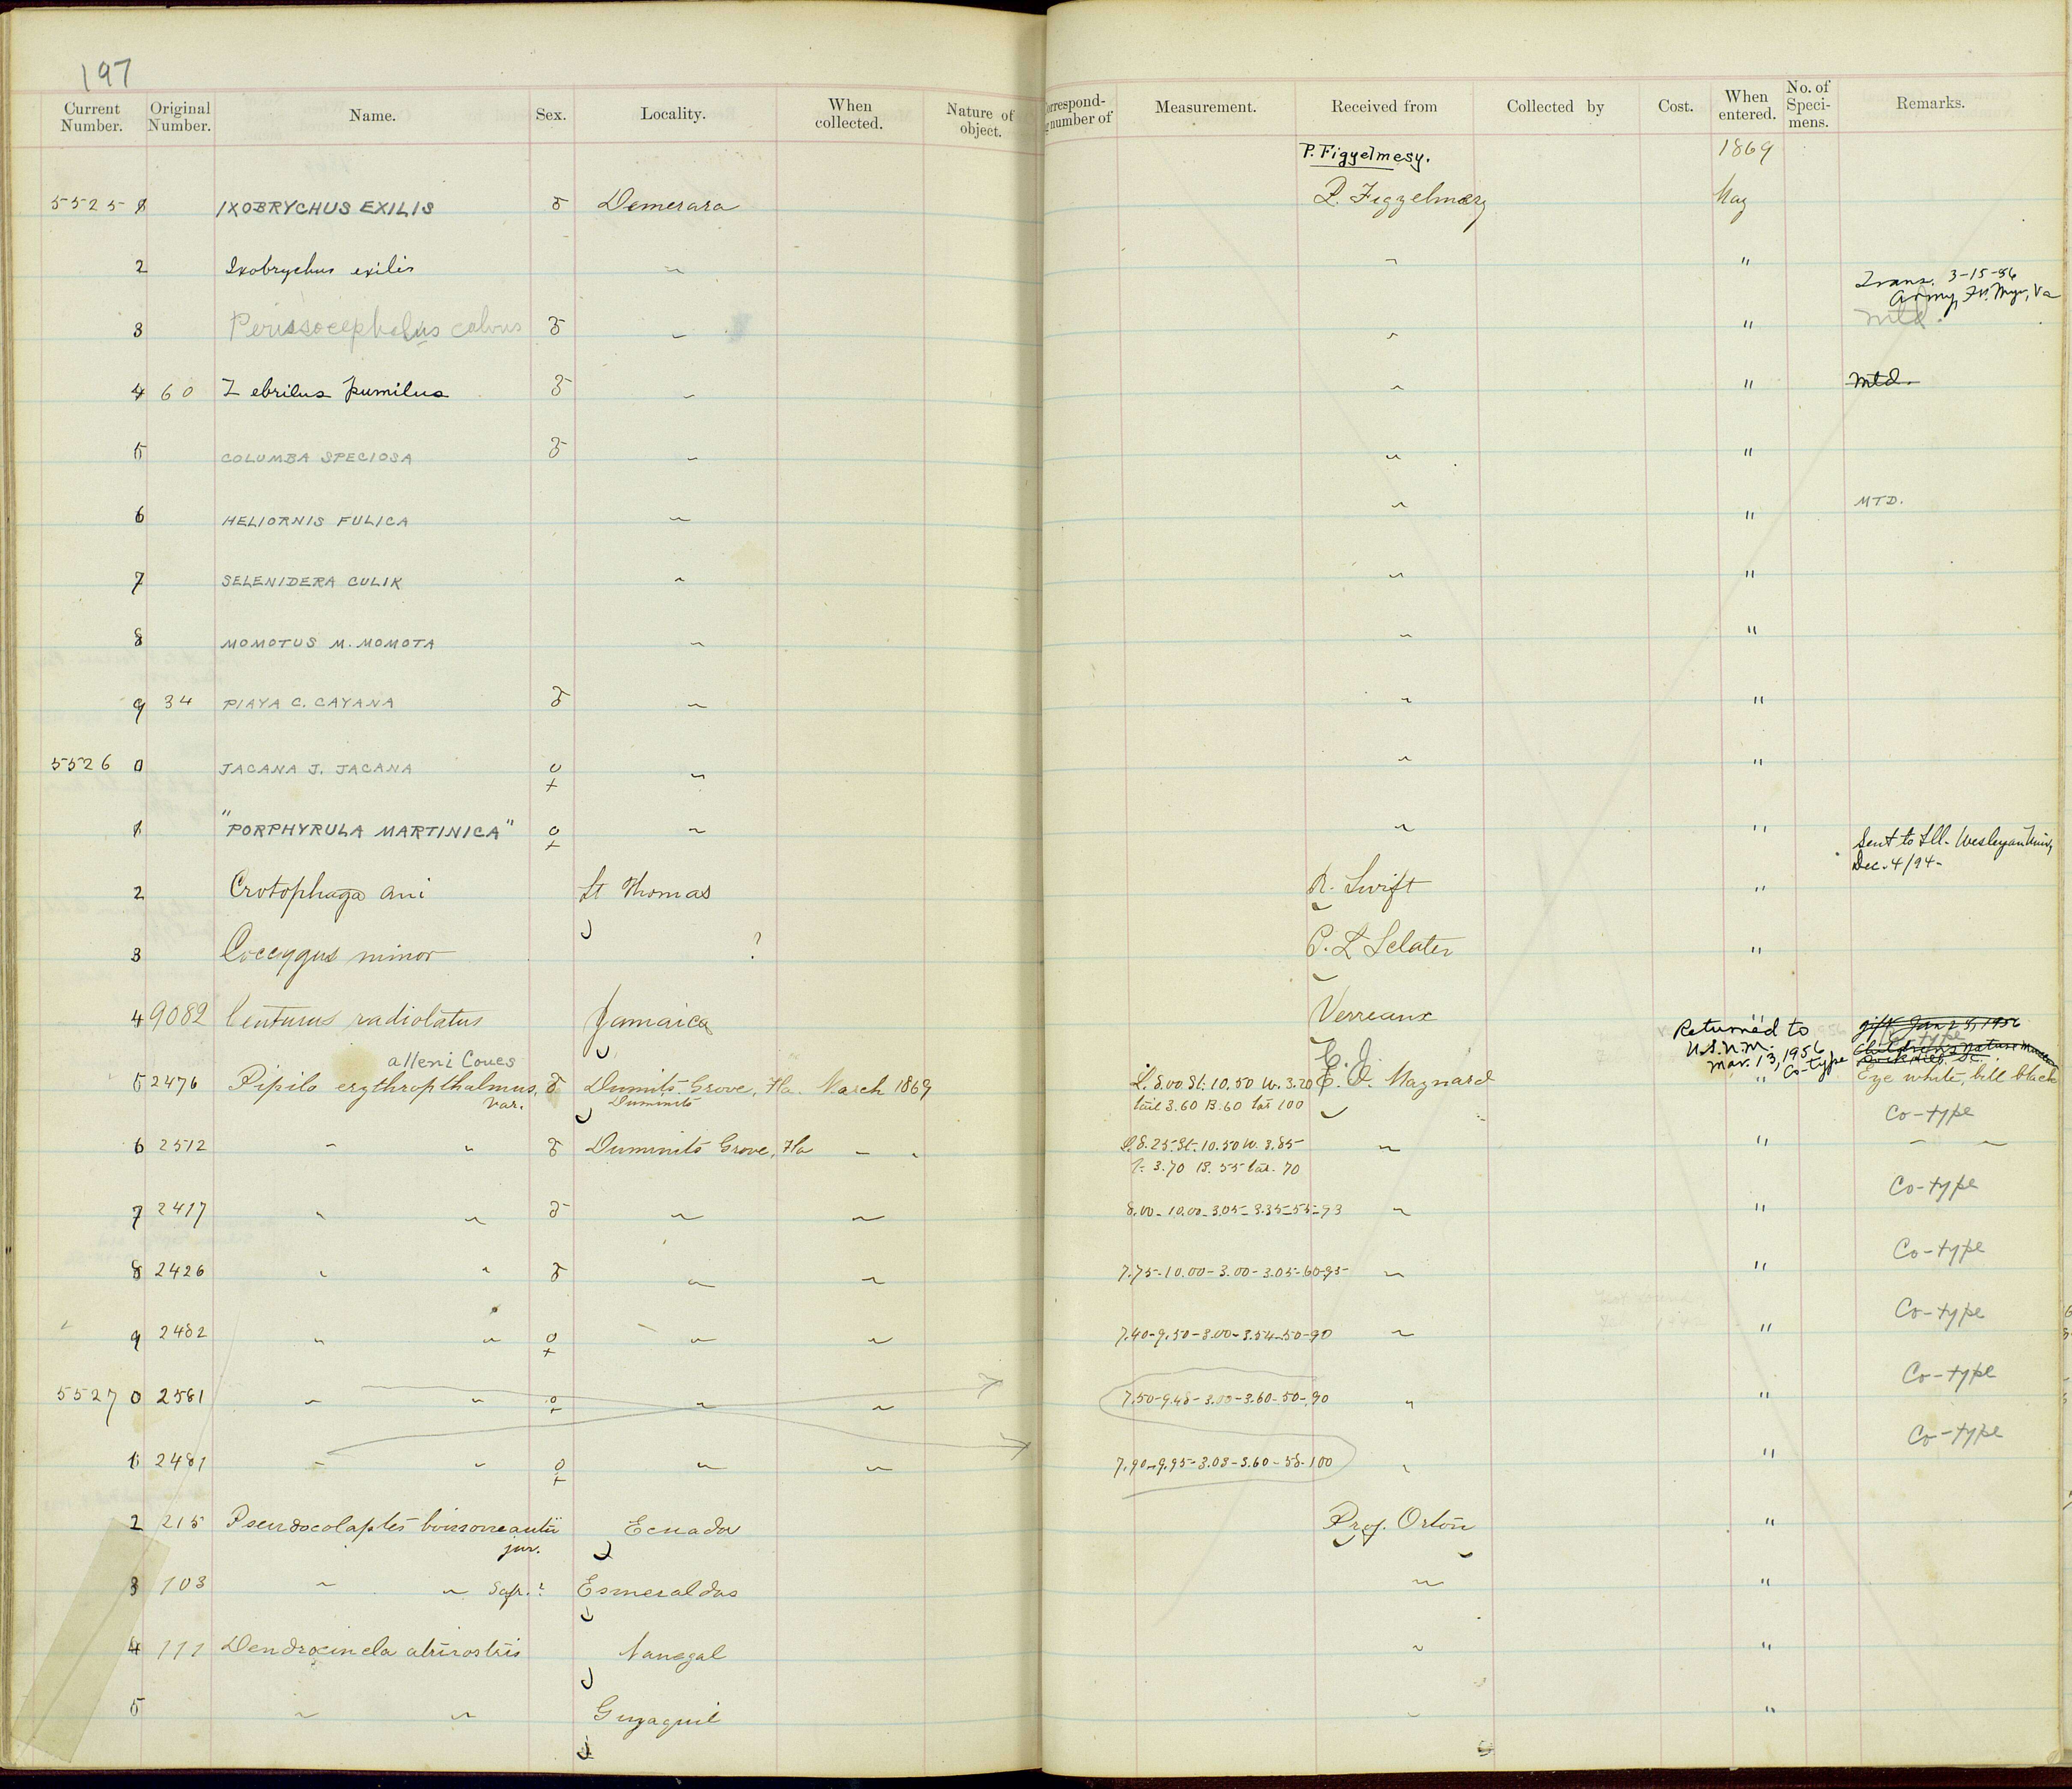 197
Current Number. Original Number. Name. Sex. Locality. When collected. Nature of object. Correspond- number of Measurement. Received from Collected by Cost. When entered. No. of Speci- mens. Remarks.
P. Figyelmesy. 1869
5525 1 IXOBRYCHUS EXILIS ♂ Demerara P. Figyelmesy May
2 Ixobrychus exilis ~ ~ "
Trans. 3-15-56
Army, Ft. Myer, Va
3 Perissocephalus calvus ♂ ~ ~ " Mtd.
4 60 Zebrilus pumilus ♂ ~ ~ " Mtd.
5 COLUMBA SPECIOSA ♂ ~ ~ "
6 HELIORNIS FULICA ~ ~ " MTD.
7 SELENIDERA CULIK ~ ~ "
8 MOMOTUS M. MOMOTA ~ ~ "
9 34 PIAYA C. CAYANA ♂ ~ ~ "
5526 0 JACANA J. JACANA ♀ ~ ~ "
1 "PORPHYRULA MARTINICA" ♀ ~ ~ "
Sent to Ill. Wesleyan Univ,
Dec. 4/94-
2 Crotophaga ani St Thomas R. Swift "
3 Coccygus minor ? P. L Sclater "
4 9082 Centurus radiolatus Jamaica Verreaux "
Returned to
U.S.N.M.
Mar. 13, 1956
Co-type
gift Jan 25, 1956
alleni Coues
5 2476 Pipilo erythropthalmus, ♂ Dumits Grove, Fla. March 1869 L. 8.00 St. 10.50 W. 3.20 C. J. Maynard " Eye white, bill black
var. Dummits tail 3.60 B. 60 tar 100
Co-type
6 2512 ~ " ♂ Dummits Grove, Fla ~ " L. 8.25 St. 10.50 W. 3.85 ~ " ~ ~
T. 3.70 B. 55 tar. 70
Co-type
7 2417 " ~ ♂ ~ ~ 8.00-10.00-3.05-3.35-55-93 ~ "
Co-type
8 2426 " " ♂ ~ ~ 7.75-10.00-3.00-3.05-60-95 ~ "
Co-type
9 2482 " ~ ♀ ~ ~ 7.40-9.50-3.00-3.54-50-90 ~ "
Co-type
5527 0 2581 ~ " ♀ ~ ~ 7.50-9.48-3.00-3.60-50-.90 " "
Co-type
1 2481 ~ " ♀ ~ ~ 7.90-9.95-3.03-3.60-58-100 " "
2 215 Pseudocolaptes boissoneautii Ecuador Prof. Orton "
jur.
3 103 ~ ~ Esmeraldas ~ "
4 111 Dendrocincla atrirostris Nanegal ~ "
5 ~ ~ Guyaquil ~ "